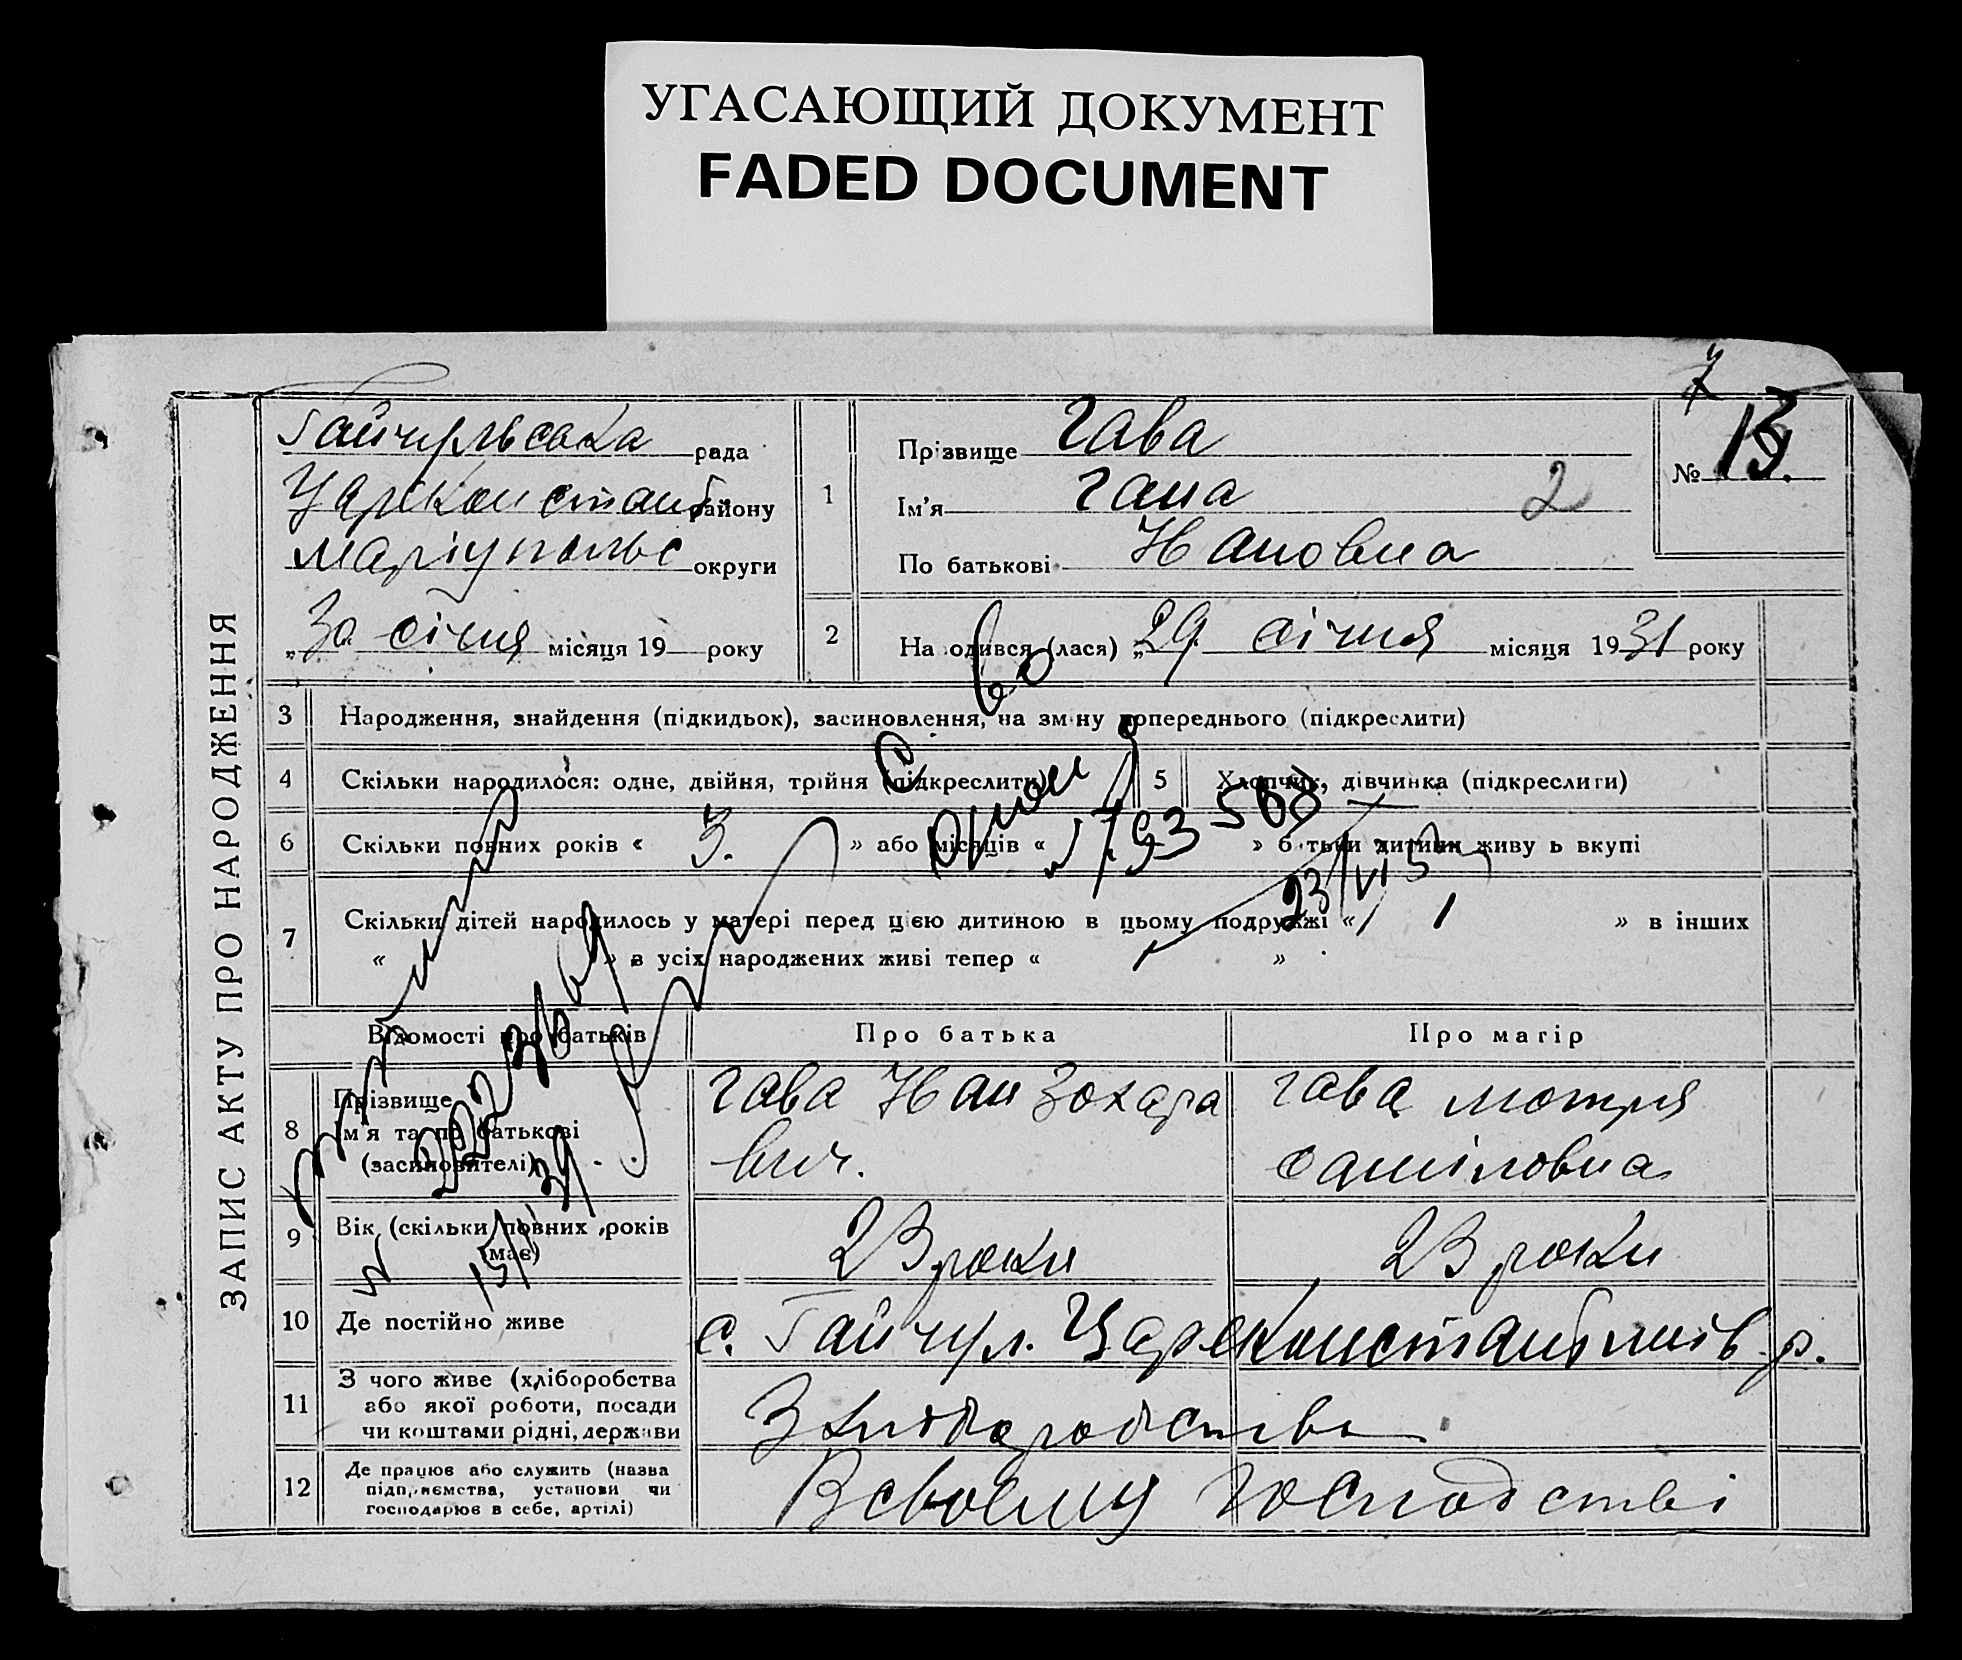 УГАСАЮЩИЙ ДОКУМЕНТ
FADED DOCUMENT
ЗАПИС АКТУ ПРО НАРОДЖЕННЯ
Гайчульська рада
Царекостянт району
Маріупольс округи
„30 січня місяця 19 року
№ 13.
1
Прізвище Гава
Ім'я Гана 2
По батькові Ивановна
2 Народився (лася) „29 січня місяця 1931 року
3 Народження, знайдення (підкидьок), засиновлення, на зміну попереднього (підкреслити)
4 Скільки народилося: одне, двійня, трійня (підкреслити)
5 Хлопчик, дівчинка (підкреслити)
6 Скільки повних років « 3. » або місяців « » батьки дитини живуть вкупі
7 Скільки дітей народилось у матері перед цією дитиною в цьому подружжі « 1 » в інших
« » в усіх народжених живі тепер « »
Відомості про батьків Про батька Про матір
8 Прізвище
ім'я та по батькові
(засиновителі)
Гава Иван Захара
вич.
Гава Мотря
Саміловна
9 Вік (скільки повних років
має)
23 роки 23 роки
10 Де постійно живе с. Гайчул. Цареконстантинів. р.
11 З чого живе (хліборобства
або якої роботи, посади
чи коштами рідні, держави
З хліборобства
12 Де працює або служить (назва
підприємства, установи чи
господарює в себе, артілі)
В своему господстві